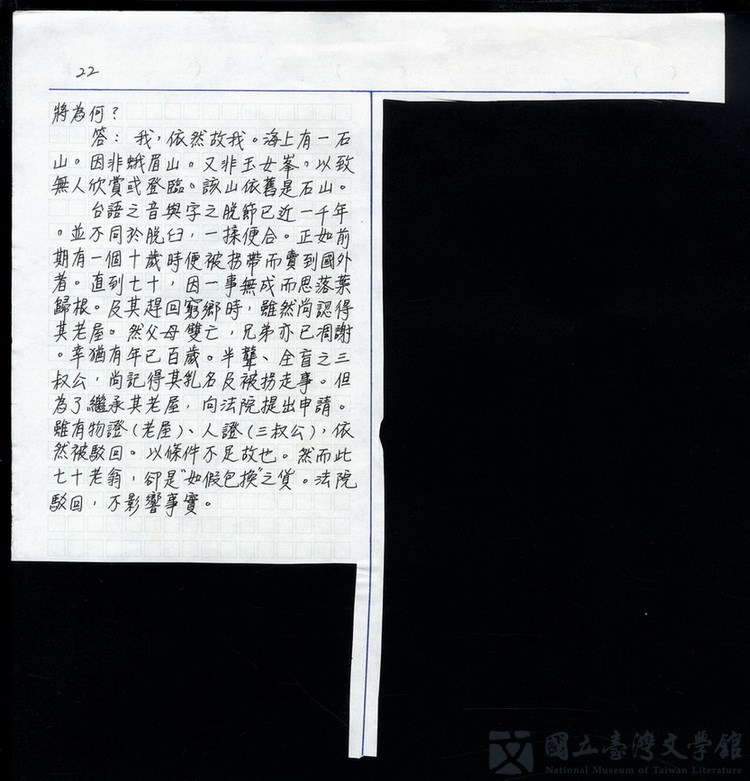 22
將為何？
答：我，依然故我。海上有一石
山。因非蛾眉山。又非玉女峯，以致
無人欣賞或登臨。該山依舊是石山。
台語之音與字之脫節已近一千年
。並不同於脫臼，一揉便合。正如前
期有一個十歲時便被拐帶而賣到國外
者。直到七十，因一事無成而思落葉
歸根。及其趕回窮鄉時，雖然尚認得
其老屋。然父母雙亡，兄弟亦已凋謝
。幸猶有年已百歲。半聾、全盲之三
叔公，尚記得其乳名及被拐走事。但
為了繼承其老屋，向法院提出申請。
雖有物證（老屋）、人證（三叔公），依
然被駁回。以條件不足故也。然而此
七十老翁，卻是"如假包換"之貨。法院
駁回，不影響事實。
國立臺灣文學館
National Museum of Taiwan Literature